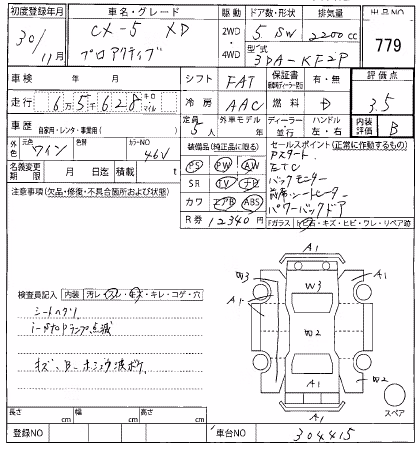 初度登録年月 車名・グレード 駆動 ドア数・形状 排気量 出品NO
30/11月 CX-5 XD 2WD 4WD 5 SW 2200cc 779
プロアクティブ 型式 3DA-KF2P
車検 年 月 シフト FAT 保証書 有・無 評価点
走行 6万5千628 キロ マイル 冷房 AAC 燃料 D 3.5
車歴 自家用・レンタ・事業用( ) 定員 5人 外車モデル 年 ディーラー 並行 ハンドル 左・右 内装評価 B
外色 元色 ワイン 色替 カラーNO 46V
装備品(純正品に限る) セールスポイント(正常に作動するもの)
名義変更期限 月 日迄 積載 t
PS PW AW Pスタート
ETC
注意事項(欠品・修復・不具合箇所および状態) SR TV ナビ バックモニター
カワ エアB ABS 前席シートヒーター
R券 12340円 パワーバックドア
Fガラス トビ石・キズ・ヒビ・ワレ・リペア跡
A1
W3 W3 A1
A1
検査員記入 内装 汚レ・スレ・キズ・キレ・コゲ・穴
シートヘタリ
W2
キズ、B
W2
A1
A1
スペア
長さ cm 幅 cm 高さ cm
登録NO 車台NO 304415